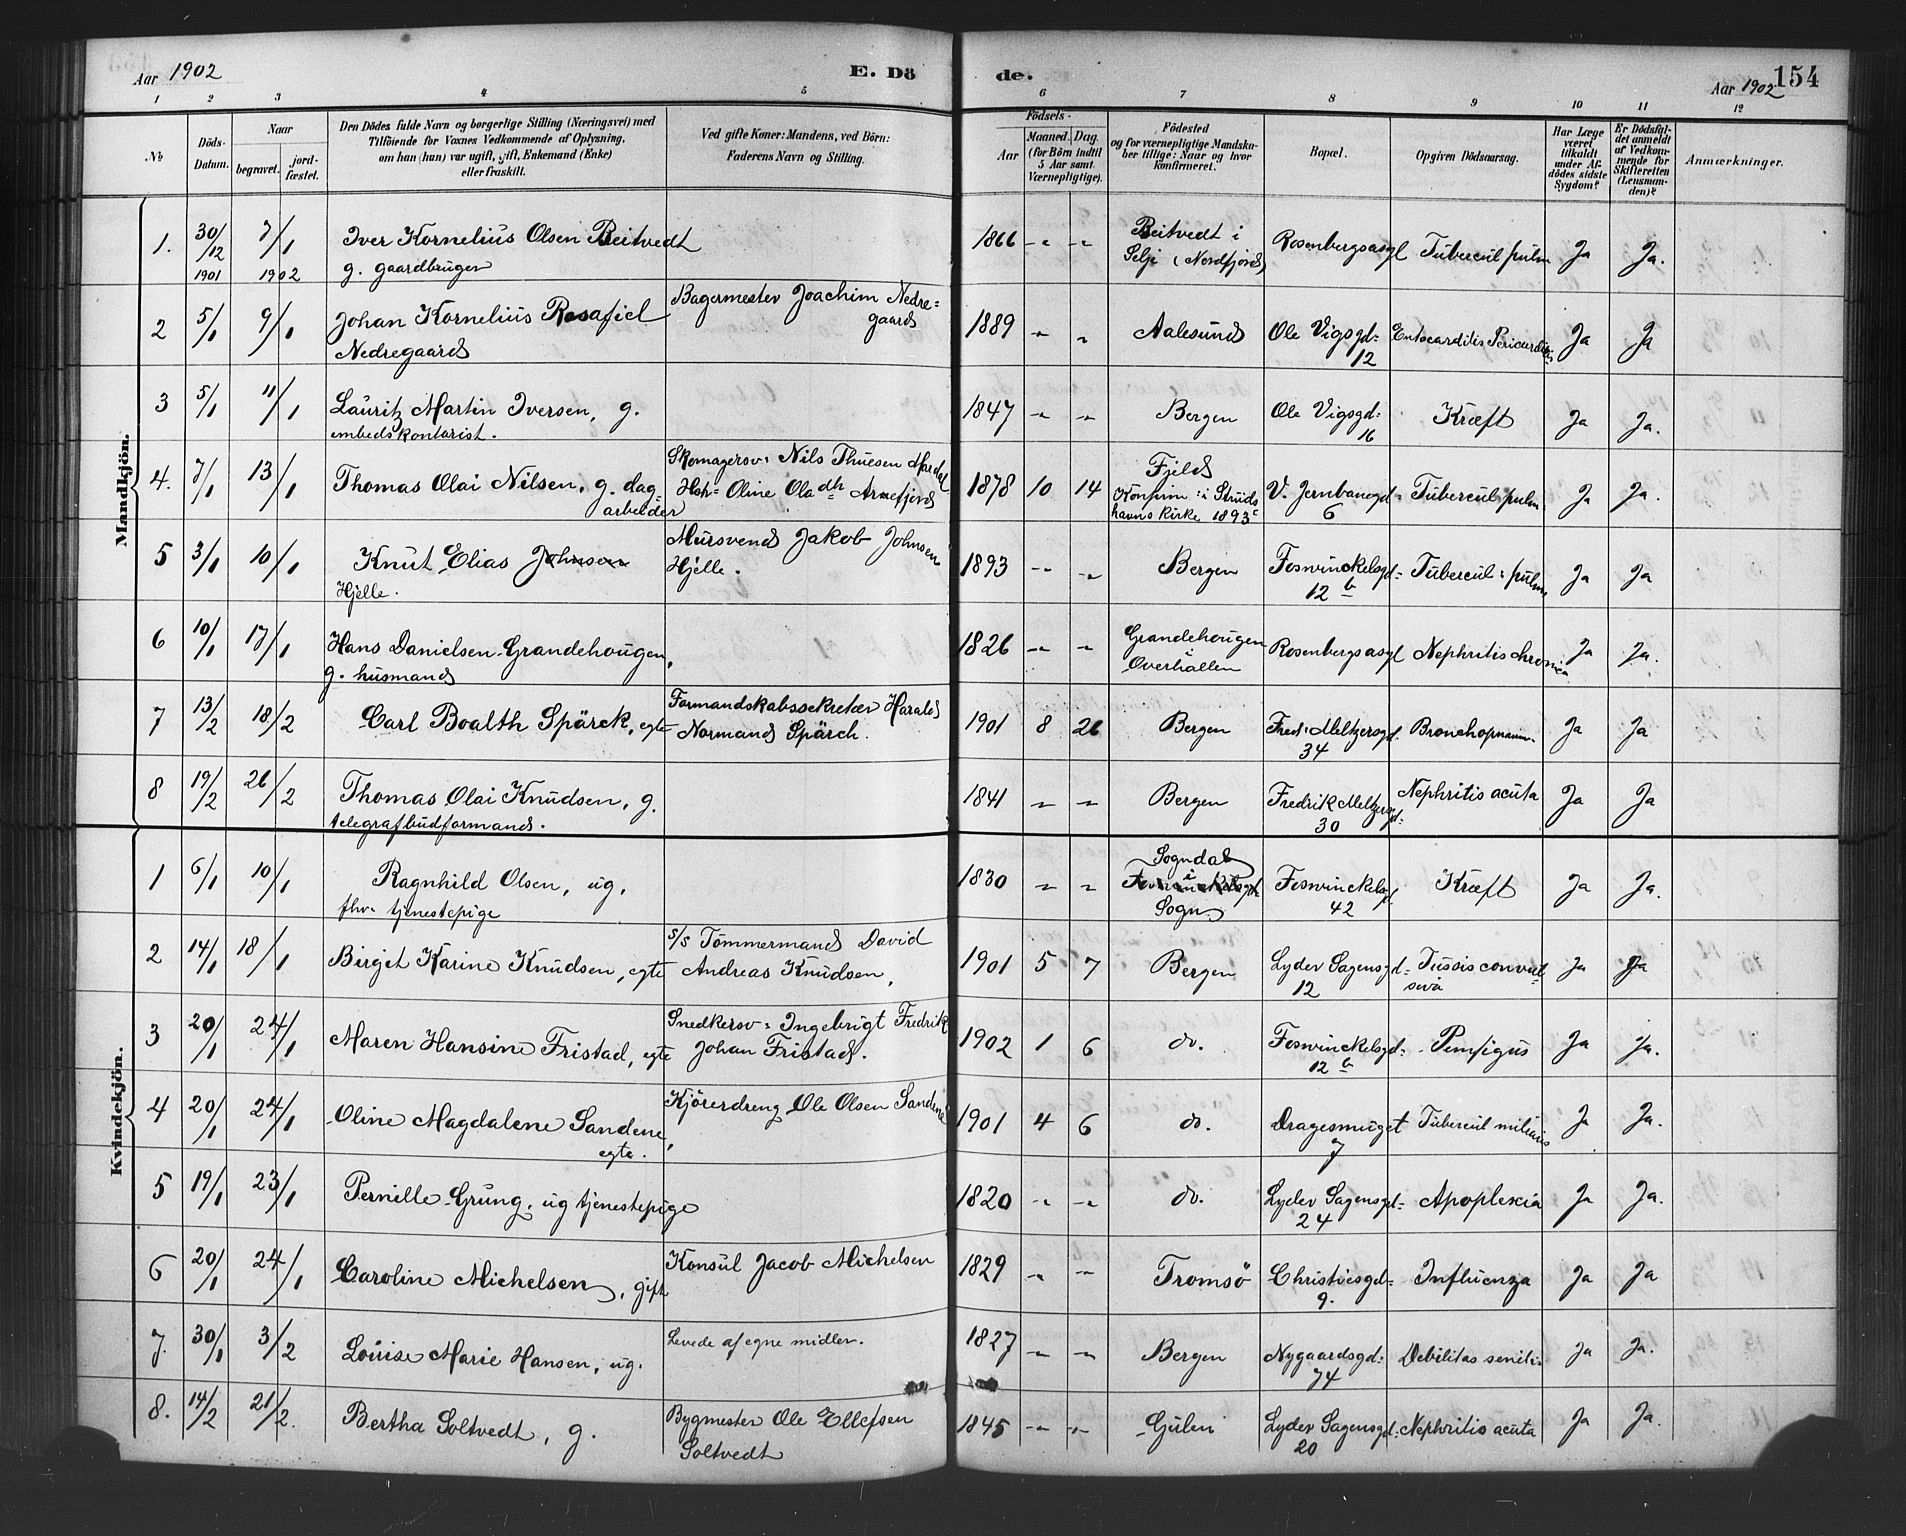 Aar 1902
E. Dö
de.
Aar 1902
154
1 2 3 4 5 6 7 8 9 10 11 12
No
Döds-
Datum.
Naar
begravet. jord-
fæstet.
Den Dödes fulde Navn og borgerlige Stilling (Næringsvei) med
Tilföiende for Voxnes Vedkommende af Oplysning,
om han (hun) var ugift, gift, Enkemand (Enke)
eller fraskilt.
Ved gifte Koner: Mandens, ved Börn:
Faderens Navn og Stilling.
Födsels-
Aar
Maaned. Dag.
(for Börn indtil
5 Aar samt
Værnepligtige).
Födested
og for værnepligtige Mandska-
ber tillige: Naar og hvor
konfirmeret.
Bopæl.
Opgiven Dödsaarsag.
Har Læge
været
tilkaldt
under Af-
dödes sidste
Sygdom?
Er Dödsfal-
det anmeldt
af Vedkom-
mende for
Skifteretten
(Lensman-
den)?
Anmærkninger.
Mandkjön.
1. 30/12 1901 7/1 1902 Iver Kornelius Olsen Beitvedt
g. gaardbruger
1866 -"- -"- Beitvedt i
Selje (Nordfjord) Rosenbergsasyl Tubercul pulm Ja Ja.
2 5/1 9/1 Johan Kornelius Rosafiel
Nedregaard
Bagermester Joachim Nedre=
gaard
1889 -"- " Aalesund Ole Vigsgd=
12 Entocarditis Pericarditis Ja Ja
3 5/1 11/1 Lauritz Martin Iversen, g.
embedskontorist.
1847 -"- -"- Bergen Ole Vigsgd:
16 Kræft Ja Ja.
4. 7/1 13/1 Thomas Olai Nilsen, g. dag=
arbeider
Skomagersv: Nils Thuesen Mardal
Hstr= Oline Oladtr Arnefjord
1878 10 14 Fjeld
Konfirm: i Struds
havns Kirke 1893 V. Jernbanegd=
6 Tubercul: pulm. Ja Ja.
5 3/1 10/1 Knut Elias Johnsen
Hjelle.
Mursvend Jakob Johnsen
Hjelle.
1893 -"- -"- Bergen Foswinckelsgd=
12 b Tubercul: pulm Ja Ja
6 10/1 17/1 Hans Danielsen Grandehougen,
g. husmand
1826 -"- -"- Grandehougen
i
Overhallen Rosenbergsasyl Nephritis chronica Ja Ja.
7 13/2 18/2 Carl Boalth Spärck, egte
Formandskabssekretær Harald
Normand Spärck.
1901 8 26 Bergen Fred: Meltzersgd.
34 Bronchopneum. Ja Ja
8 19/2 26/2 Thomas Olai Knudsen, g.
telegrafbudformand.
1841 -"- -"- Bergen Fredrik Meltzersgd=
30 Nephritis acuta Ja Ja
Kvindekjön.
1 6/1 10/1 Ragnhild Olsen, ug,
fhv. tjenestepige
1830 " -"- Sogndal
i
Foswinckelsgd
Sogn. Foswinckelsgd.
42 Kræft Ja Ja.
2 14/1 18/1 Birgit Karine Knudsen, egte
s/s Tömmermand David
Andreas Knudsen,
1901 5 7 Bergen Lyder Sagensgd=
12 Tussis convul=
siva Ja Ja
3 20/1 24/1 Maren Hansine Fristad, egte
Snedkersv= Ingebrigt Fredrik
Johan Fristad.
1902 1 6 do. Foswinckelsgd=
12 b Pemfigus Ja Ja.
4 20/1 24/1 Oline Magdalene Sandene,
egte.
Kjörerdreng Ole Olsen Sandene
1901 4 6 do. Dragesmuget
7 Tubercul miliaris Ja Ja.
5 19/1 23/1 Pernille Grung, ug tjenestepige
1820 -"- -"- do. Lyder Sagensgd=
24 Apoplexia Ja Ja.
6 20/1 24/1 Caroline Michelsen, gift
Konsul Jacob Michelsen
1829 -"- -"- Tromsö Christiesgd=
9. Influenza Ja Ja
7. 30/1 3/2 Louise Marie Hansen, ug.
Levede af egne midler.
1827 -"- -"- Bergen Nygaardsgd:
74 Debilitas senilis Ja Ja.
8. 14/2 21/2. Bertha Soltvedt, g.
Bygmester Ole Ellefsen
Soltvedt
1845 -"- -"- Gulen Lyder Sagensgd:
20 Nephritis acuta Ja Ja.